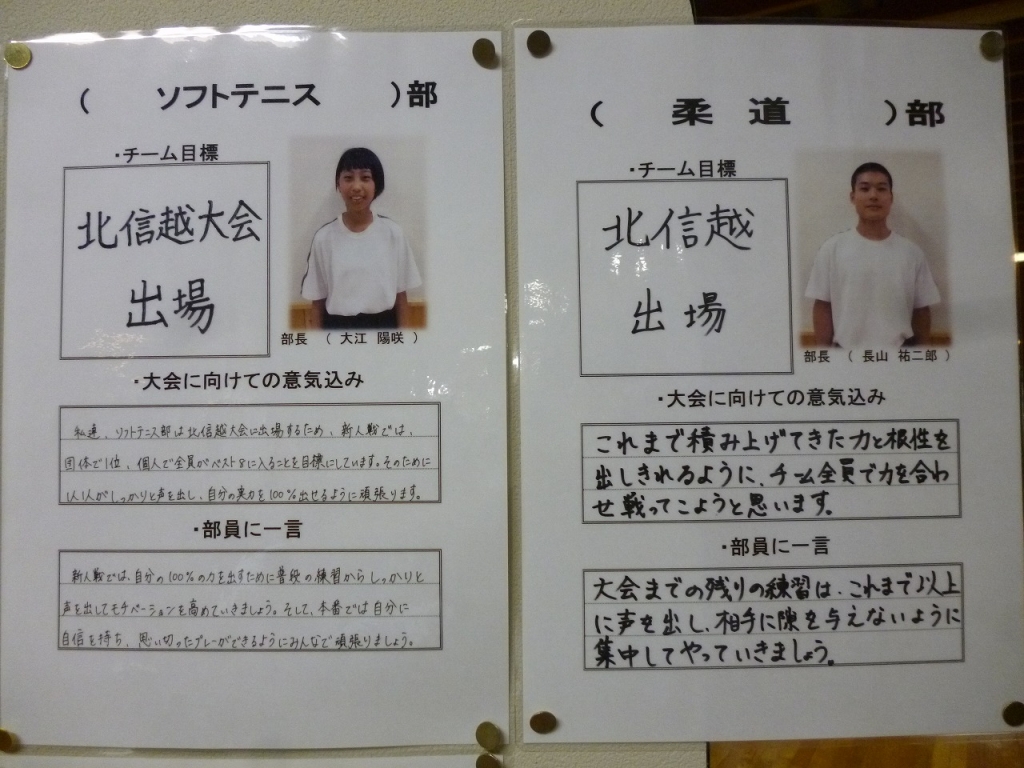 ( ソフトテニス )部
・チーム目標
北信越大会
出場
部長 ( 大江 陽咲 )
・大会に向けての意気込み
私達、ソフトテニス部は北信越大会に出場するため、新人戦では、
団体で1位、個人で全員がベスト8に入ることを目標にしています。そのために
1人1人がしっかりと声を出し、自分の実力を100%出せるように頑張ります。
・部員に一言
新人戦では、自分の100%の力を出すために普段の練習からしっかりと
声を出してモチベーションを高めていきましょう。そして、本番では自分に
自信を持ち、思い切ったプレーができるようにみんなで頑張りましょう。
( 柔道 )部
・チーム目標
北信越
出場
部長 ( 長山 祐二郎 )
・大会に向けての意気込み
これまで積み上げてきた力と根性を
出しきれるように、チーム全員で力を合わ
せ戦ってこようと思います。
・部員に一言
大会までの残りの練習は、これまで以上
に声を出し、相手に隙を与えないように
集中してやっていきましょう。